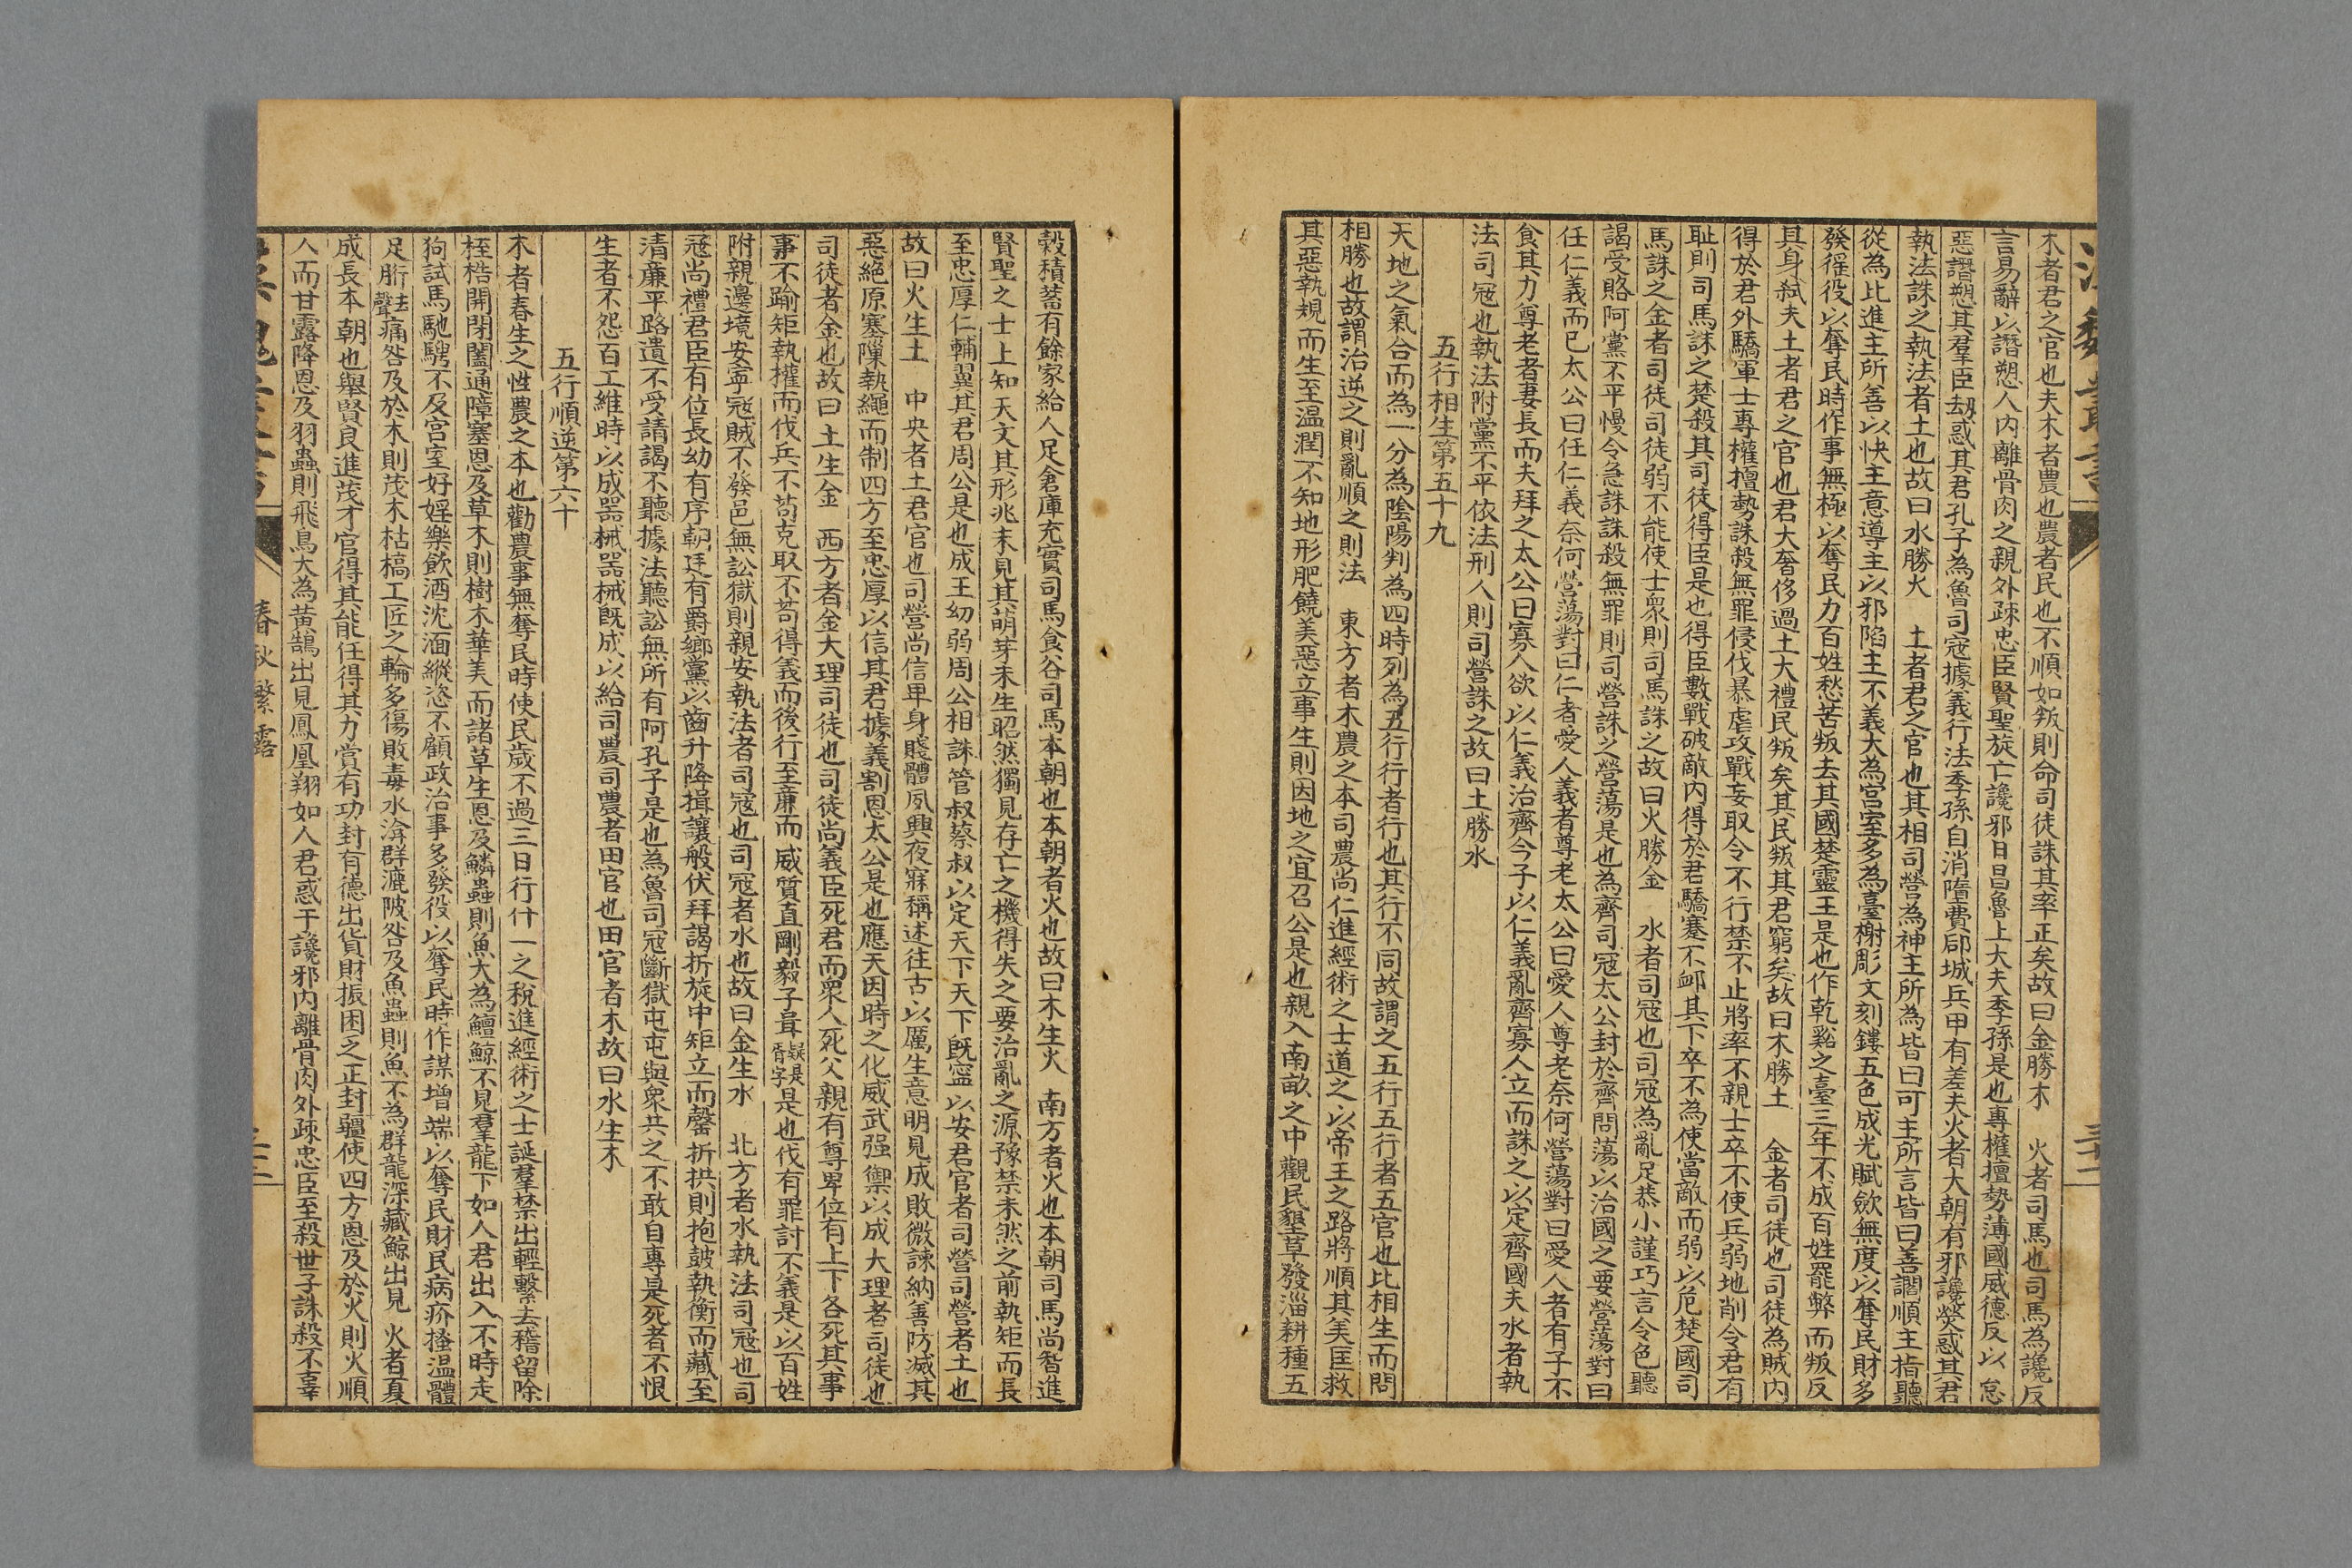 木者君之官也夫木者農也農者民也不順如叛則命司徒誅其率正矣故曰金勝木　火者司馬也司馬為讒反
言易辭以譖愬人內離骨肉之親外疎忠臣賢聖旋亡讒邪日昌魯上大夫季孫是也專權擅勢薄國威德反以怠
惡譖愬其羣臣劫惑其君孔子為魯司寇據義行法季孫自消墮費郈城兵甲有差夫火者大朝有邪讒熒惑其君
執法誅之執法者土也故曰水勝火　土者君之官也其相司營為神主所為皆曰可主所言皆曰善讇順主指聽
從為比進主所善以快主意導主以邪陷主不義大為宮室多為臺榭彫文刻鏤五色成光賦歛無度以奪民財多
發徭役以奪民時作事無極以奪民力百姓愁苦叛去其國楚靈王是也作乾谿之臺三年不成百姓罷弊而叛反
其身弑夫土者君之官也君大奢侈過土大禮民叛矣其民叛其君窮矣故曰木勝土　金者司徒也司徒為賊內
得於君外驕軍士專權擅勢誅殺無罪侵伐暴虐攻戰妄取令不行禁不止將率不親士卒不使兵弱地削令君有
耻則司馬誅之楚殺其司徒得臣是也得臣數戰破敵內得於君驕蹇不卹其下卒不為使當敵而弱以危楚國司
馬誅之金者司徒司徒弱不能使士衆則司馬誅之故曰火勝金　水者司冦也司冦為亂足恭小謹巧言令色聽
謁受賂阿黨不平慢令急誅誅殺無罪則司營誅之營蕩是也為齊司冦太公封於齊問蕩以治國之要營蕩對曰
任仁義而已太公曰任仁義奈何營蕩對曰仁者愛人義者尊老太公曰愛人尊老奈何營蕩對曰愛人者有子不
食其力尊老者妻長而夫拜之太公曰寡人欲以仁義治齊今子以仁義亂齊寡人立而誅之以定齊國夫水者執
法司冦也執法附黨不平依法刑人則司營誅之故曰土勝水
五行相生第五十九
天地之氣合而為一分為陰陽判為四時列為五行行者行也其行不同故謂之五行五行者五官也比相生而間
相勝也故謂治逆之則亂順之則法　東方者木農之本司農尚仁進經術之士道之以帝王之路將順其美匡救
其惡執規而生至温潤下知地形肥饒美惡立事生則因地之宜召公是也親入南畝之中觀民墾草發淄耕種五
穀積蓄有餘家給人足倉庫充實司馬食谷司馬本朝也本朝者火也故曰木生火　南方者火也本朝司馬尚智進
賢聖之士上知天文其形兆未見其萌芽未生昭然獨見存亡之機得失之要治亂之源豫禁未然之前執矩而長
至忠厚仁輔翼其君周公是也成王幼弱周公相誅管叔蔡叔以定天下天下旣寧以安君官者司營司營者土也
故曰火生土　中央者土君官也司營尚信卑身賤體夙興夜寐稱述往古以厲生意明見成敗微諫納善防滅其
惡絕原塞隟執繩而制四方至忠厚以信其君據義割恩太公是也應天因時之化威武强禦以成大理者司徒也
司徒者金也故曰土生金　西方者金大理司徒也司徒尚義臣死君而衆人死父親有尊卑位有上下各死其事
事不踰矩執權而伐兵不苟克取不苟得義而後行至亷而威質直剛毅子胥疑是胥字是也伐有罪討不義是以百姓
附親邊境安寧寇賊不發邑無訟獄則親安執法者司冦也司冦者水也故曰金生水　北方者水執法司冦也司
冦尚禮君臣有位長幼有序朝廷有爵鄉黨以齒升降揖讓般伏拜謁折旋中矩立而磬折拱則抱鼓執衡而藏至
清廉平賂遺不受請謁不聽據法聽訟無所有阿孔子是也為魯司冦斷獄屯屯與衆共之不敢自專是死者不恨
生者不怨百工維時以成器械器械旣成以給司農司農者田官也田官者木故曰水生木
五行順逆第六十
木者春生之性農之本也勸農事無奪民時使民歲不過三日行什一之稅進經術之士誕羣禁出輕繫去稽留除
桎梏開閉闔通障塞恩及草木則樹木華美而諸草生恩及鱗蟲則魚大為鱣鯨不見羣龍下如人君出入不時走
狗試馬馳騁不反宮室好婬樂飲酒沈湎縱恣不顧政治事多發役以奪民時作謀增端以奪民財民病疥搔温體
足胻去聲痛咎及於木則茂木枯槁工匠之輪多傷敗毒水渰群漉陂咎及魚蟲則魚不為群龍深藏鯨出見　火者夏
成長本朝也舉賢良進茂才官得其能任得其力賞有功封有德出貨財振困乏正封疆使四方恩及於火則火順
人而甘露降恩及羽蟲則飛鳥大為黃鵠出見鳳凰翔如人君惑于讒邪內離骨肉外疎忠臣至殺世子誅殺不辜
春秋繁露